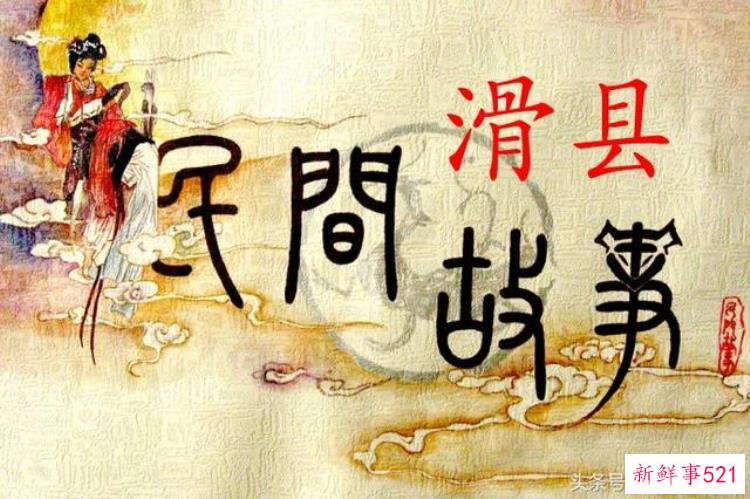 滑县
民間
故事
头条号
新鲜事521